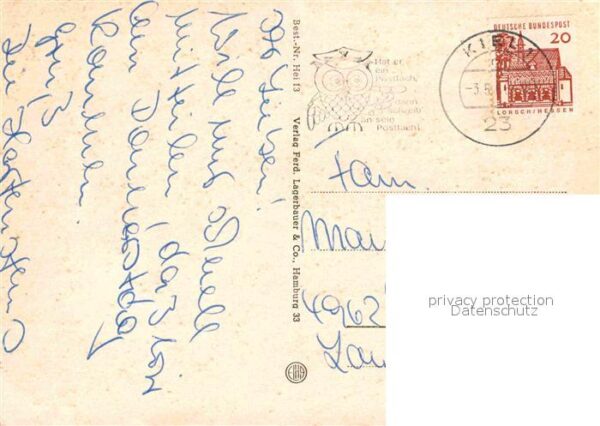 Ihr Lieben!
Will nur schnell
mitteilen, daß wir
am Donnerstag
kommen.
Gruß
Best.-Nr. Hei 13 Verlag Ferd. Lagerbauer & Co., Hamburg 33
Hat er
ein
Postfach,
in sein
Postfach!
KIEL
-3.6
23
DEUTSCHE BUNDESPOST
20
LORSCH/HESSEN
Fam.
Mai
4962
Lau
privacy protection
Datenschutz